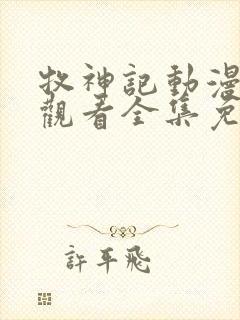 牧神記動漫
觀看全集免
許平飛